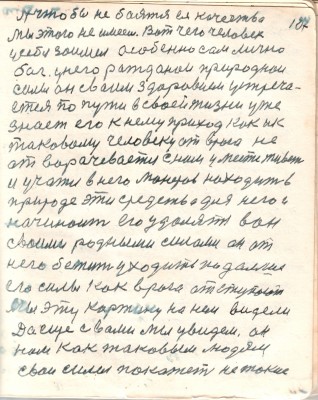 А чтобы не боятся ея качества
мы этого не имеем. Вот чего человек
у себя заимел особенно сам лично
бог. у него ражданой природной
силы он своим здоровием устреча-
ется по пути в своей жизни уже
знает его к нему приход как ик
таковому человеку от врага не
от ворачевается с ним уместе живет
и учатя в него находить в
природе эти средства для него и
начинает его удалять вон
своими родными силами он от
него бежит уходить подальши
его силы как врага отступают
Мы эту картину на нем видели
Да еще с вами мы увидем, он
нам как таковым людям
свои силы покажет не такие